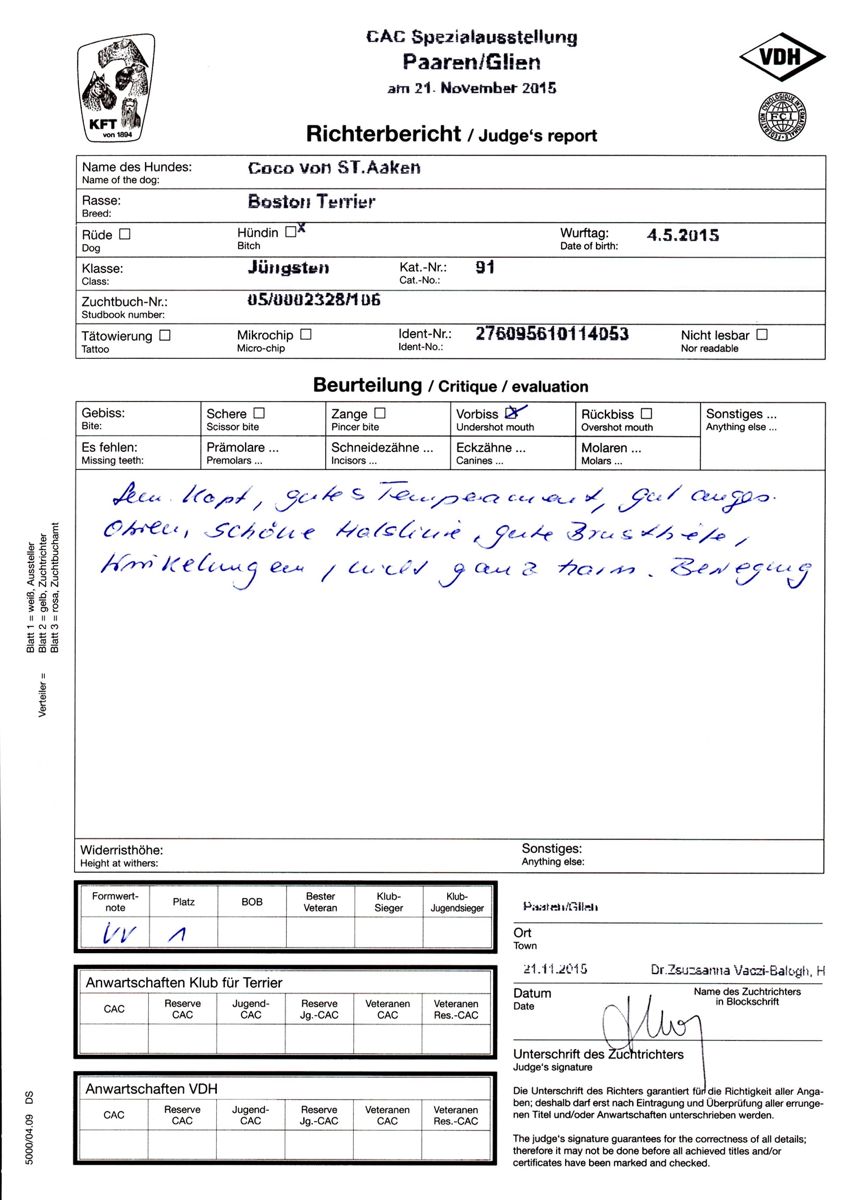 CAC Spezialausstellung
Paaren/Glien
am 21. November 2015
KFT
von 1894
VDH
FEDERATION CYNOLOGIQUE INTERNATIONALE
FCI
Richterbericht / Judge's report
Name des Hundes: Coco von ST.Aaken
Name of the dog:
Rasse: Boston Terrier
Breed:
Rüde ☐ Hündin ☐x Wurftag: 4.5.2015
Dog Bitch Date of birth:
Klasse: Jüngsten Kat.-Nr.: 91
Class: Cat.-No.:
Zuchtbuch-Nr.: 05/0002328/106
Studbook number:
Tätowierung ☐ Mikrochip ☐ Ident-Nr.: 276095610114053 Nicht lesbar ☐
Tattoo Micro-chip Ident-No.: Nor readable
Beurteilung / Critique / evaluation
Gebiss: Schere ☐ Zange ☐ Vorbiss ☒ Rückbiss ☐ Sonstiges ...
Bite: Scissor bite Pincer bite Undershot mouth Overshot mouth Anything else ...
Es fehlen: Prämolare ... Schneidezähne ... Eckzähne ... Molaren ...
Missing teeth: Premolars ... Incisors ... Canines ... Molars ...
Kopf, gutes Temperament, gut anges.
Ohren, schöne Halslinie, gute Brusttiefe,
Winkelungen, nicht ganz harm. Bewegung
Widerristhöhe: Sonstiges:
Height at withers: Anything else:
Formwert- Platz BOB Bester Klub- Klub-
note Veteran Sieger Jugendsieger
VV 1
Paaren/Glien
Ort
Town
21.11.2015 Dr.Zsuzsanna Vaczi-Balogh, H
Datum Name des Zuchtrichters
Date in Blockschrift
Unterschrift des Zuchtrichters
Judge's signature
Anwartschaften Klub für Terrier
CAC Reserve Jugend- Reserve Veteranen Veteranen
CAC CAC Jg.-CAC CAC Res.-CAC
Anwartschaften VDH
CAC Reserve Jugend- Reserve Veteranen Veteranen
CAC CAC Jg.-CAC CAC Res.-CAC
Die Unterschrift des Richters garantiert für die Richtigkeit aller Anga-
ben; deshalb darf erst nach Eintragung und Überprüfung aller errunge-
nen Titel und/oder Anwartschaften unterschrieben werden.
The judge's signature guarantees for the correctness of all details;
therefore it may not be done before all achieved titles and/or
certificates have been marked and checked.
Verteiler = Blatt 1 = weiß, Aussteller
Blatt 2 = gelb, Zuchtrichter
Blatt 3 = rosa, Zuchtbuchamt
5000/04.09 DS